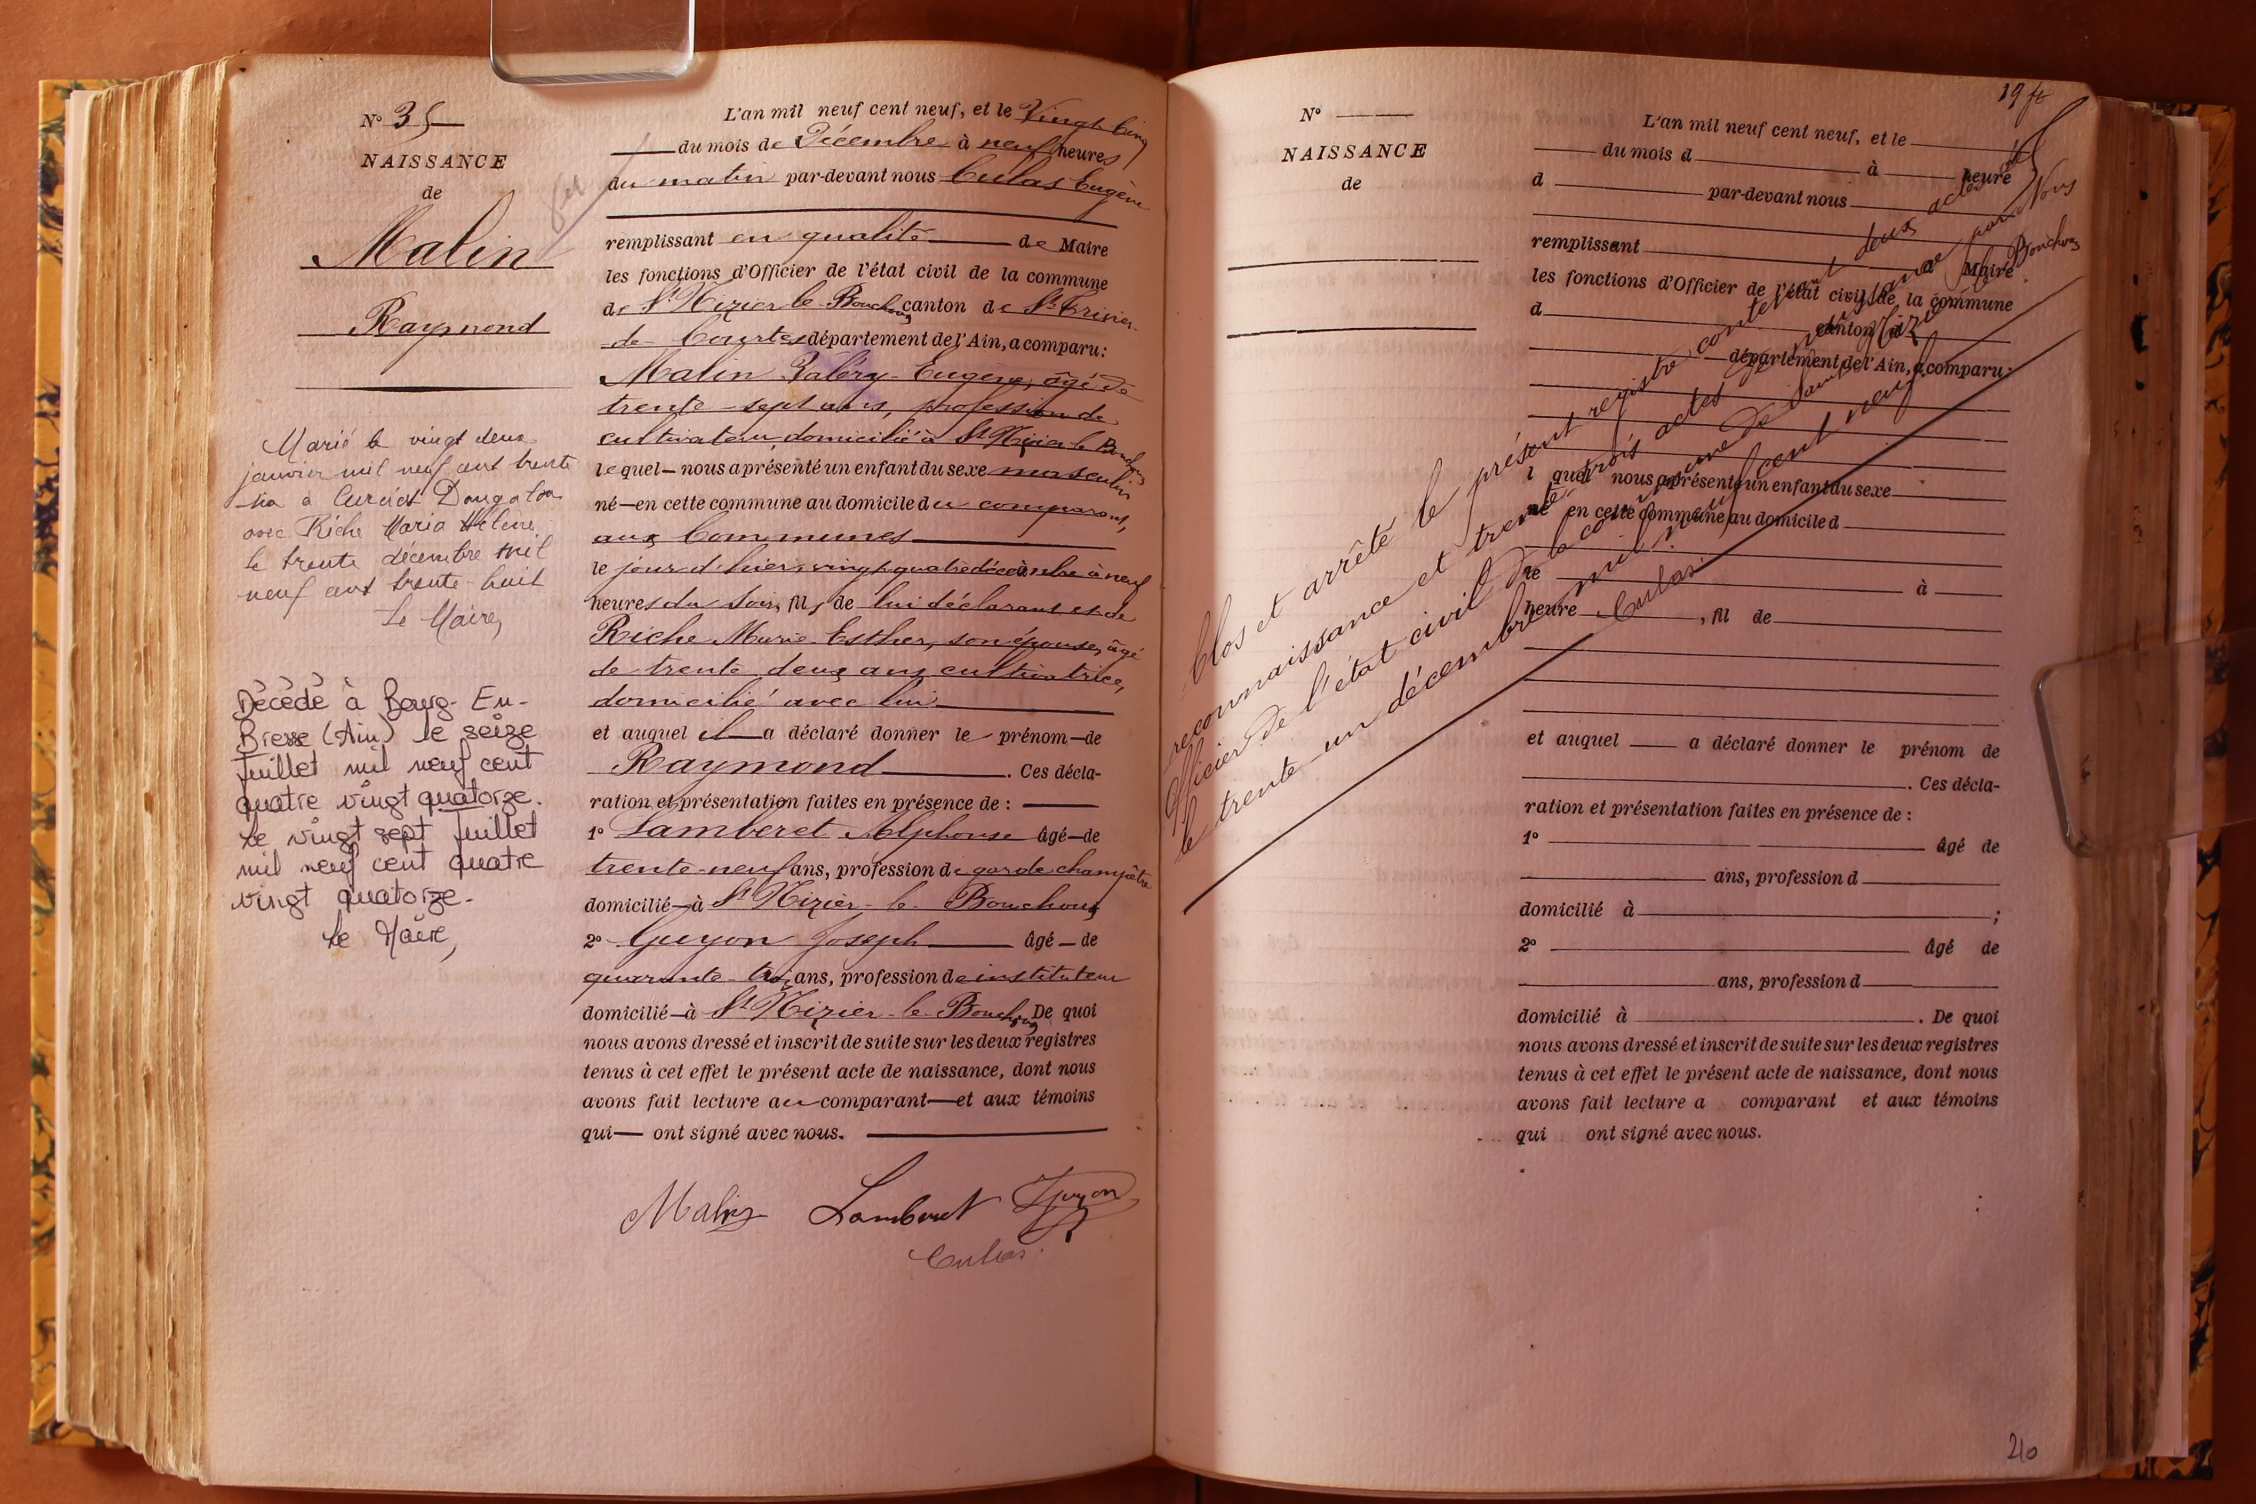 N° 35
NAISSANCE
de
Malin
Raymond
Marié le vingt deux
janvier mil neuf cent trente
six à Curciat Dongalon
avec Riche Maria Hélène
le trente décembre mil
neuf cent trente-huit
Le Maire,
Décédé à Bourg-En-
Bresse (Ain) le seize
juillet mil neuf cent
quatre vingt quatorze.
Le vingt sept juillet
mil neuf cent quatre
vingt quatorze.
Le Maire,
L'an mil neuf cent neuf, et le Vingt cinq
du mois de Décembre à neuf heures
du matin par-devant nous Culas Eugène
remplissant en qualité de Maire
les fonctions d'Officier de l'état civil de la commune
de St Nizier le Bouchoux canton de St Trivier
de Courtes département de l'Ain, a comparu:
Malin Valéry Eugène, âgé de
trente-sept ans, profession de
cultivateur, domicilié à St Nizier le Bouchoux
lequel nous a présenté un enfant du sexe masculin
né en cette commune au domicile du comparant,
aux Communes
le jour d'hier, vingt quatre décembre à neuf
heures du soir, fils de lui déclarant et de
Riche Marie Esther, son épouse, âgé
de trente deux ans cultivatrice,
domicilié avec lui
et auquel il a déclaré donner le prénom de
Raymond. Ces décla-
ration et présentation faites en présence de :
1° Lamberet Alphonse âgé de
trente-neuf ans, profession de garde champêtre
domicilié à St Nizier-le-Bouchoux
2° Guyon Joseph âgé de
quarante-trois ans, profession de instituteur
domicilié à St Nizier-le-Bouchoux De quoi
nous avons dressé et inscrit de suite sur les deux registres
tenus à cet effet le présent acte de naissance, dont nous
avons fait lecture au comparant et aux témoins
qui ont signé avec nous.
Malin Lamberet Guyon
Culas.
19 ft
N°
NAISSANCE
de
L'an mil neuf cent neuf, et le
du mois d à heure
d par-devant nous
remplissant Maire
les fonctions d'Officier de l'état civil de la commune
d canton d
département de l'Ain, a comparu:
l quel nous a présenté un enfant du sexe
né en cette commune au domicile d
le à
heure , fil de
et auquel a déclaré donner le prénom de
. Ces décla-
ration et présentation faites en présence de :
1° âgé de
ans, profession d
domicilié à ;
2° âgé de
ans, profession d
domicilié à . De quoi
nous avons dressé et inscrit de suite sur les deux registres
tenus à cet effet le présent acte de naissance, dont nous
avons fait lecture a comparant et aux témoins
qui ont signé avec nous.
Clos et arrêté le présent registre contenant deux actes de
reconnaissance et trente trois actes de naissance par Nous
Officier de l'état civil de la commune de Saint Nizier le Bouchoux
le trente-un décembre mil neuf cent neuf.
Culas
210